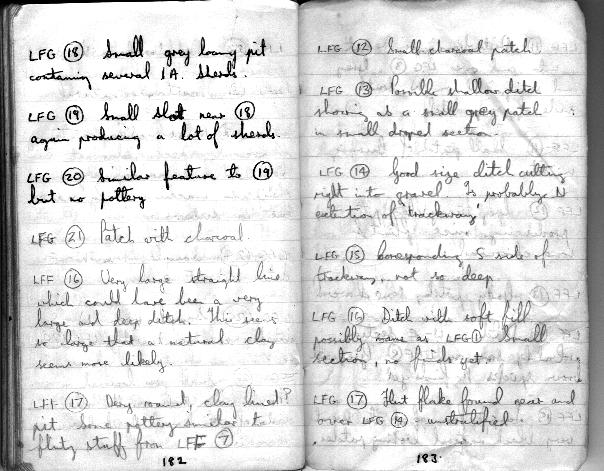 LFG (18) Small grey loamy pit
containing several IA. Sherds.
LFG (19) Small slot near (18)
again producing a lot of sherds.
LFG (20) Similar feature to (19)
but no pottery
LFG (21) Patch with charcoal.
LFF (16) Very large straight line
which could have been a very
large and deep ditch. This seems
so large that a natural clay
seems more likely.
LFF (17) Very round, clay lined?
pit. Some pottery similar to
flinty stuff from LFF (7)
182
LFG (12) Small charcoal patch
LFG (13) Possible shallow ditch
showing as a small grey patch
in small dropped section.
LFG (14) Good size ditch cutting
right into gravel. Is probably N
extention of 'trackway'
LFG (15) Coresponding S side of
trackway, not so deep
LFG (16) Ditch with soft fill
possibly same as LFG (1) Small
section, no finds yet.
LFG (17) Flint flake found near and
over LFG (14) - unstratified.
183.